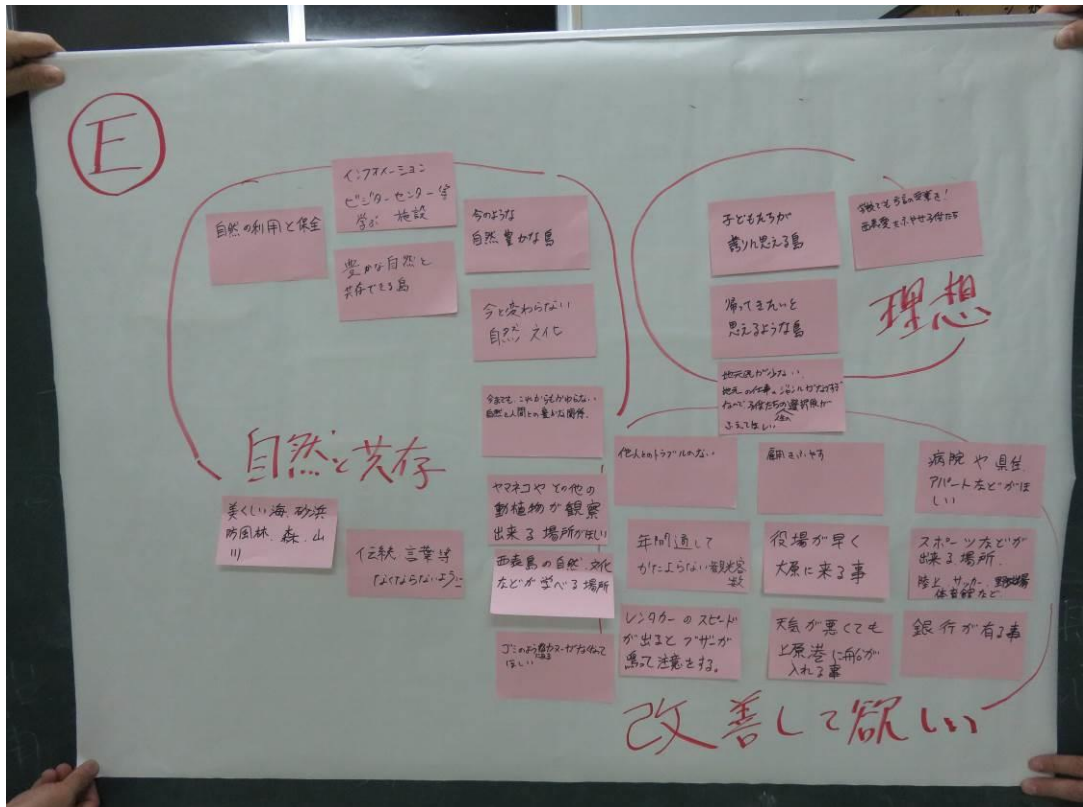 E
自然の利用と保全
インフォメーション
ビジターセンター等
学ぶ 施設
豊かな自然と
共存できる島
今のような
自然豊かな島
今と変わらない
自然、文化
今までも、これからもかわらない
自然と人間との豊かな関係。
自然と共存
美しい海、砂浜
防風林、森、山
川
伝統、言葉等
なくならないように
ヤマネコやその他の
動植物が観察
出来る場所がほしい
西表島の自然、文化
などが学べる場所
ゴミのような
ほしい
子どもたちが
誇りに思える島
学校でも方言の授業を!
西表愛をふやせ子供たち
帰ってきたいと
思えるような島
理想
地元民が少ない、
地元の仕事、ジャンルが
子供たちの選択肢が
ふえてほしい
他人とのトラブルのない
雇用をふやす
病院や県住、
アパートなどがほ
しい
年間通して
かたよらない観光客
数
役場が早く
大原に来る事
スポーツなどが
出来る場所、
陸上、サッカー、野球場
体育館など
レンタカーのスピード
が出るとブザーが
鳴って注意をする。
天気が悪くても
上原港に船が
入れる事
銀行が有る事
改善して欲しい